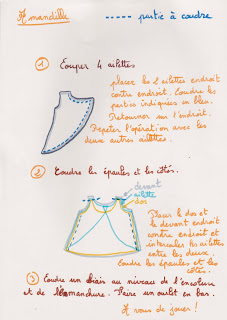 Amandille
---- partie à coudre
1 Couper 4 ailettes
placer les 2 ailettes endroit
contre endroit. Coudre les
parties indiquées en bleu.
Retourner sur l'endroit.
Répéter l'opération avec les
deux autres ailettes.
2 Coudre les épaules et les côtés.
devant
ailette
dos
Placer le dos et
le devant endroit
contre endroit et
intercaler les ailettes
entre les deux.
Coudre les épaules et les
côtés.
3 Coudre un biais au niveau de l'encolure
et de l'emmanchure. Faire un ourlet en bas.
A vous de jouer !